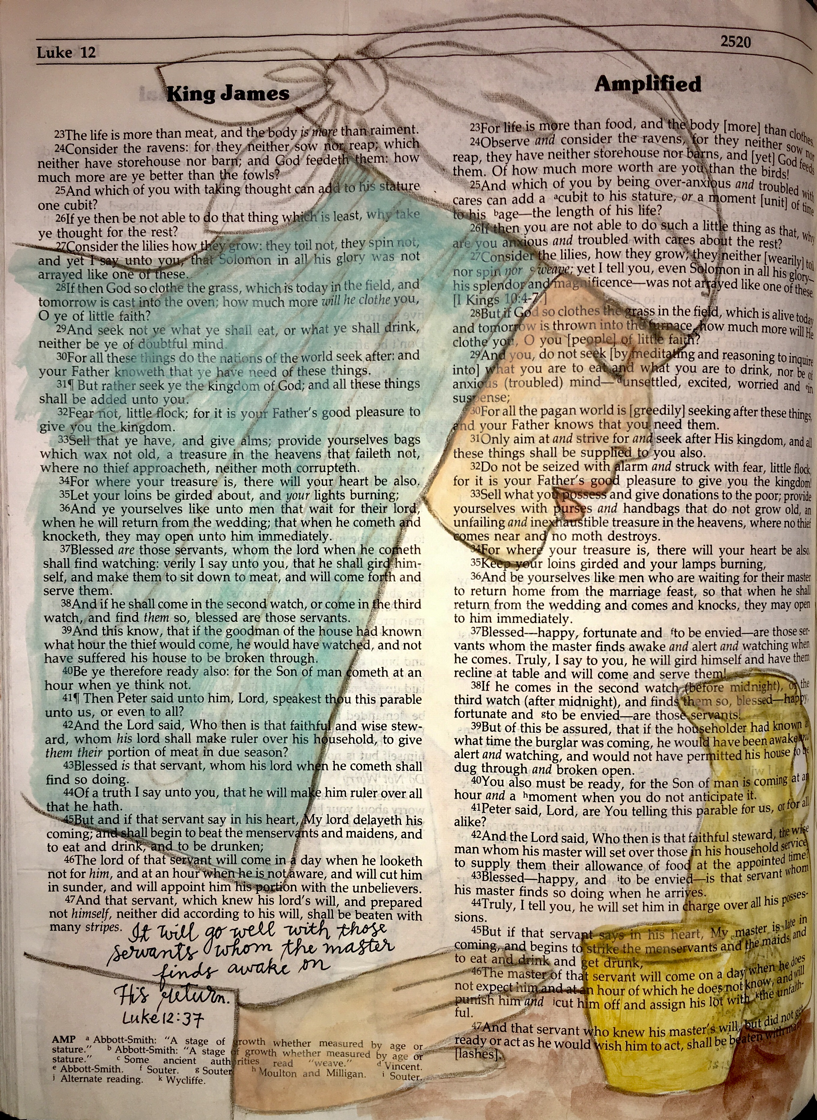 Luke 12
2520
King James
23The life is more than meat, and the body is more than raiment.
24Consider the ravens: for they neither sow nor reap; which
neither have storehouse nor barn; and God feedeth them: how
much more are ye better than the fowls?
25And which of you with taking thought can add to his stature
one cubit?
26If ye then be not able to do that thing which is least, why take
ye thought for the rest?
27Consider the lilies how they grow: they toil not, they spin not,
and yet I say unto you, that Solomon in all his glory was not
arrayed like one of these.
28If then God so clothe the grass, which is today in the field, and
tomorrow is cast into the oven; how much more will he clothe you,
O ye of little faith?
29And seek not ye what ye shall eat, or what ye shall drink,
neither be ye of doubtful mind.
30For all these things do the nations of the world seek after: and
your Father knoweth that ye have need of these things.
31¶ But rather seek ye the kingdom of God; and all these things
shall be added unto you.
32Fear not, little flock; for it is your Father's good pleasure to
give you the kingdom.
33Sell that ye have, and give alms; provide yourselves bags
which wax not old, a treasure in the heavens that faileth not,
where no thief approacheth, neither moth corrupteth.
34For where your treasure is, there will your heart be also.
35Let your loins be girded about, and your lights burning;
36And ye yourselves like unto men that wait for their lord,
when he will return from the wedding; that when he cometh and
knocketh, they may open unto him immediately.
37Blessed are those servants, whom the lord when he cometh
shall find watching: verily I say unto you, that he shall gird him-
self, and make them to sit down to meat, and will come forth and
serve them.
38And if he shall come in the second watch, or come in the third
watch, and find them so, blessed are those servants.
39And this know, that if the goodman of the house had known
what hour the thief would come, he would have watched, and not
have suffered his house to be broken through.
40Be ye therefore ready also: for the Son of man cometh at an
hour when ye think not.
41¶ Then Peter said unto him, Lord, speakest thou this parable
unto us, or even to all?
42And the Lord said, Who then is that faithful and wise stew-
ard, whom his lord shall make ruler over his household, to give
them their portion of meat in due season?
43Blessed is that servant, whom his lord when he cometh shall
find so doing.
44Of a truth I say unto you, that he will make him ruler over all
that he hath.
45But and if that servant say in his heart, My lord delayeth his
coming; and shall begin to beat the menservants and maidens, and
to eat and drink, and to be drunken;
46The lord of that servant will come in a day when he looketh
not for him, and at an hour when he is not aware, and will cut him
in sunder, and will appoint him his portion with the unbelievers.
47And that servant, which knew his lord's will, and prepared
not himself, neither did according to his will, shall be beaten with
many stripes.
It will go well with those
servants whom the master
finds awake on
His return.
Luke 12:37
AMP a Abbott-Smith: "A stage of growth whether measured by age or
stature." b Abbott-Smith: "A stage of growth whether measured by age or
stature." c Some ancient authorities read "weave." d Vincent.
e Abbott-Smith. f Souter. g Souter. h Moulton and Milligan. i Souter.
j Alternate reading. k Wycliffe.
Amplified
23For life is more than food, and the body [more] than clothes.
24Observe and consider the ravens, for they neither sow nor
reap, they have neither storehouse nor barns, and [yet] God feeds
them. Of how much more worth are you than the birds!
25And which of you by being over-anxious and troubled with
cares can add a acubit to his stature, or a moment [unit] of time
to his bage—the length of his life?
26If then you are not able to do such a little thing as that, why
are you anxious and troubled with cares about the rest?
27Consider the lilies, how they grow; they neither [wearily] toil
nor spin nor cweave; yet I tell you, even Solomon in all his glory—
his splendor and magnificence—was not arrayed like one of these.
[I Kings 10:4-7.]
28But if God so clothes the grass in the field, which is alive today
and tomorrow is thrown into the furnace, how much more will He
clothe you, O you [people] of little faith?
29And you, do not seek [by meditating and reasoning to inquire
into] what you are to eat and what you are to drink, nor be of
anxious (troubled) mind—unsettled, excited, worried and in
suspense;
30For all the pagan world is [greedily] seeking after these things,
and your Father knows that you need them.
31Only aim at and strive for and seek after His kingdom, and all
these things shall be supplied to you also.
32Do not be seized with alarm and struck with fear, little flock,
for it is your Father's good pleasure to give you the kingdom!
33Sell what you possess and give donations to the poor; provide
yourselves with purses and handbags that do not grow old, an
unfailing and inexhaustible treasure in the heavens, where no thief
comes near and no moth destroys.
34For where your treasure is, there will your heart be also.
35Keep your loins girded and your lamps burning,
36And be yourselves like men who are waiting for their master
to return home from the marriage feast, so that when he shall
return from the wedding and comes and knocks, they may open
to him immediately.
37Blessed—happy, fortunate and fto be envied—are those ser-
vants whom the master finds awake and alert and watching when
he comes. Truly, I say to you, he will gird himself and have them
recline at table and will come and serve them!
38If he comes in the second watch (before midnight), or the
third watch (after midnight), and finds them so, blessed—happy,
fortunate and gto be envied—are those servants!
39But of this be assured, that if the householder had known
what time the burglar was coming, he would have been awake
alert and watching, and would not have permitted his house to be
dug through and broken open.
40You also must be ready, for the Son of man is coming at an
hour and a hmoment when you do not anticipate it.
41Peter said, Lord, are You telling this parable for us, or for all
alike?
42And the Lord said, Who then is that faithful steward, the wise
man whom his master will set over those in his household service
to supply them their allowance of food at the appointed time?
43Blessed—happy, and ito be envied—is that servant whom
his master finds so doing when he arrives.
44Truly, I tell you, he will set him in charge over all his posses-
sions.
45But if that servant says in his heart, My master is late in
coming, and begins to strike the menservants and the maids and
to eat and drink and get drunk,
46The master of that servant will come on a day when he does
not expect him and at an hour of which he does not know, and will
punish him and jcut him off and assign his lot with the unfaith-
ful.
47And that servant who knew his master's will, but did not get
ready or act as he would wish him to act, shall be beaten with many
[lashes].